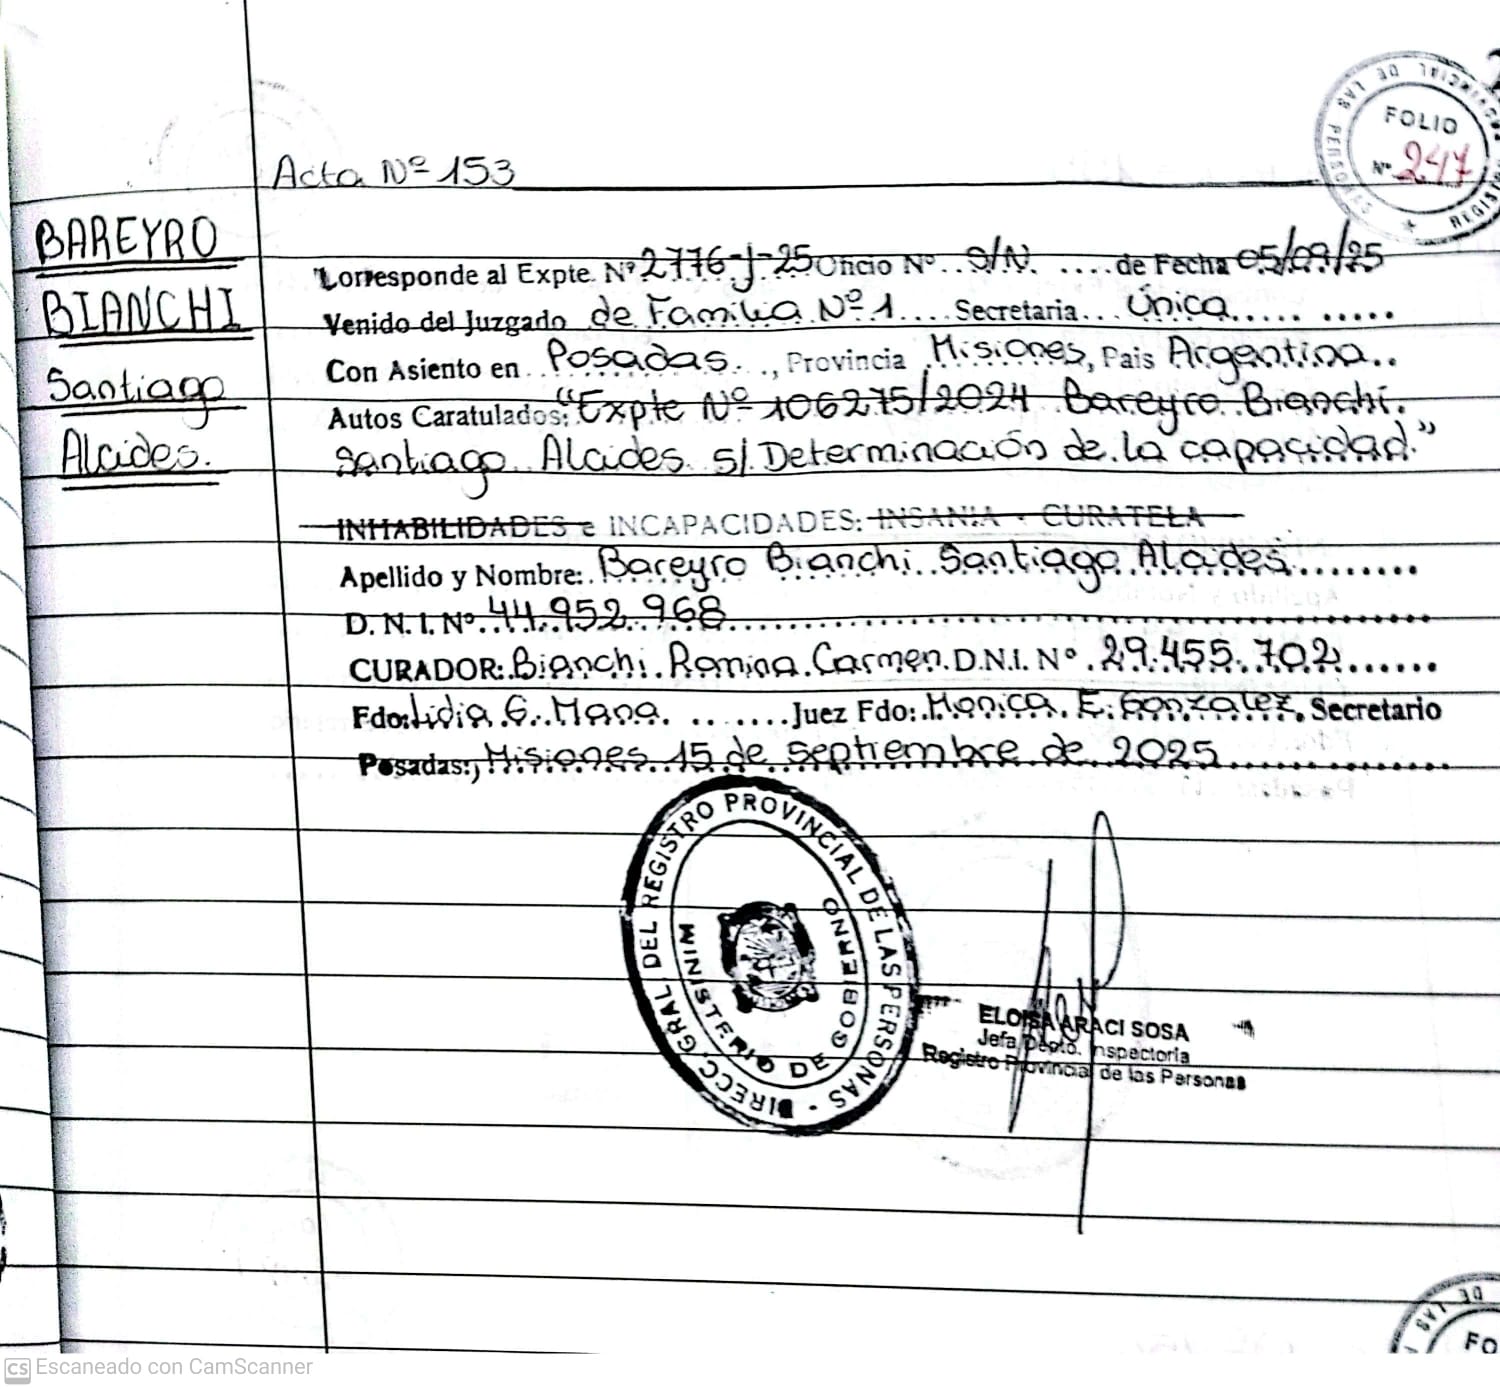 FOLIO
Nº 247
Acta Nº 153
BAREYRO
BIANCHI
Santiago
Alcides.
Corresponde al Expte. Nº 2776-J-25 Oficio Nº S/N. de Fecha 05/09/25
Venido del Juzgado de Familia Nº 1 Secretaria Única
Con Asiento en Posadas, Provincia Misiones, Pais Argentina
Autos Caratulados: "Expte Nº 106275/2024 Bareyro Bianchi
Santiago Alcides s/ Determinación de la capacidad."
INHABILIDADES e INCAPACIDADES: INSANIA - CURATELA
Apellido y Nombre: Bareyro Bianchi Santiago Alcides
D. N. I. Nº 44.952.968
CURADOR: Bianchi Romina Carmen D.N.I. Nº 29.455.702
Fdo: Lidia G. Juez Fdo: Monica E. Gonzalez, Secretario
Posadas:, Misiones 15 de septiembre de 2025
DIRECC. GRAL. DEL REGISTRO PROVINCIAL DE LAS PERSONAS -
MINISTERIO DE GOBIERNO
ELOISA ARACI SOSA
Jefa Depto. Inspectoria
Registro Provincial de las Personas
DE LAS
FO
CS Escaneado con CamScanner